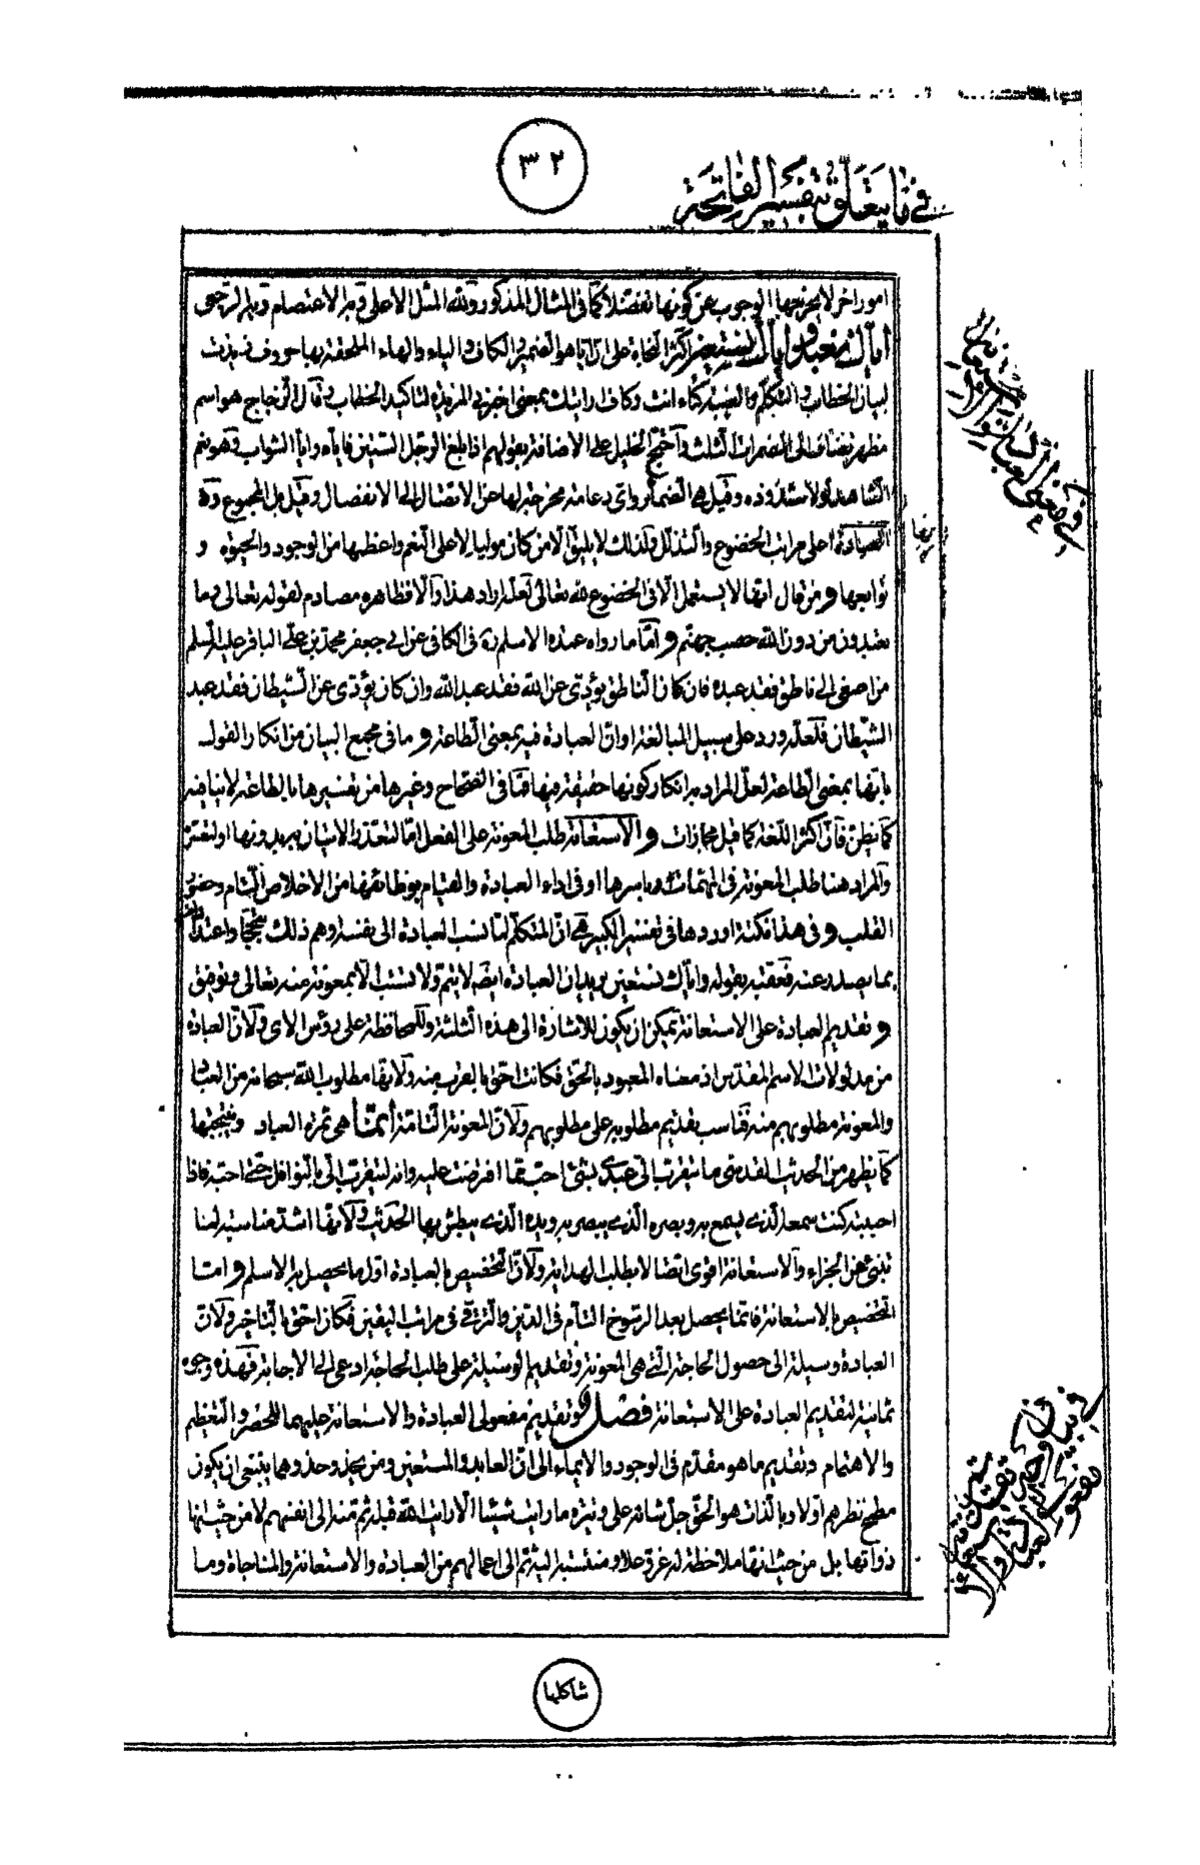 ٣٢
في ما يتعلق بتفسير الفاتحة
امور اخر لا يخرجها الوجوب عن كونها تفضلا كما في المثال المذكور ولله المثل الاعلى وبه الاعتصام
اياك نعبد واياك نستعين اكثر النحاة على ان ايا هو الضمير والكاف والياء والهاء الملحقة بها حروف زيدت
لبيان الخطاب والتكلم والغيبة كتاء انت وكاف ارايتك بمعنى اخبرني المزيدة لتاكيد الخطاب وقال الزجاج هو اسم
مظهر مضاف الى المضمرات الثلث واحتج الخليل على الاضافة بقولهم اذا بلغ الرجل الستين فاياه وايا الشواب وهو نعم
الشاهد لولا شذوذه وقيل هي الضمائر واي دعامة مخرجة لها عن الاتصال الى الانفصال وقيل بل المجموع و
العبادة اعلى مراتب الخضوع والتذلل ولذلك لا يليق الا لمن كان موليا لاعلى النعم واعظمها من الوجود والحيوة و
توابعها ومن قال انها لا يستعمل الا في الخضوع لله تعالى لعله اراد هذا والا فظاهره مصادم لقوله تعالى وما
تعبدون من دون الله حصب جهنم واما ما رواه عمدة الاسلام في الكافي عن ابي جعفر محمد بن علي الباقر عليه السلم
من اصغى الى ناطق فقد عبده فان كان الناطق يؤدي عن الله فقد عبد الله وان كان يؤدي عن الشيطان فقد عبد
الشيطان فلعله ورد على سبيل المبالغة او ان العبادة فيه بمعنى الطاعة وما في مجمع البيان من انكار القول
بانها بمعنى الطاعة لعل المراد به انكار كونها حقيقة فيها فما في الصحاح وغيرها من تفسيرها بالطاعة لا ينافيه
كما يظن فان اكثر اللغة كما قيل مجازات والاستعانة طلب المعونة على الفعل اما لتعذر الاتيان به بدونها او لتعسر
والمراد هنا طلب المعونة في المهمات باسرها او في اداء العبادة والقيام بوظائفها من الاخلاص التام وحضور
القلب وفي هذا نكتة اوردها في تفسير الكبير هي ان المتكلم لما نسب العبادة الى نفسه وهم ذلك تبجحا واعتدادا منه
بما يصدر عنه فعقبه بقوله واياك نستعين يريد ان العبادة ايضا لا يتم ولا تستتب الا بمعونة منه تعالى وتوفيق
وتقديم العبادة على الاستعانة يمكن ان يكون للاشارة الى هذه النكتة وللمحافظة على رؤس الاي ولان العبادة
من مدلولات الاسم المقدس اذ معناه المعبود بالحق فكانت احق بالقرب منه ولانها مطلوب الله سبحانه من العباد
والمعونة مطلوبهم منه فناسب تقديم مطلوبه على مطلوبهم ولان المعونة التامة انما هي ثمرة العبادة ونتيجتها
كما يظهر من الحديث القدسي ما يتقرب الي عبدي بشئ احب مما افترضت عليه وانه ليتقرب الي بالنوافل حتى احبه فاذا
احببته كنت سمعه الذي يسمع به وبصره الذي يبصر به ويده الذي يبطش بها الحديث ولانها اشد مناسبة لما
ينبئ عن الجزاء والاستعانة اقوى اتصالا بطلب الهداية ولان التخصيص بالعبادة اول ما يحصل به الاسلم واما
التخصيص بالاستعانة فانما يحصل بعد الرسوخ التام في الدين والترقي في مراتب اليقين فكان احق بالتاخير ولان
العبادة وسيلة الى حصول الحاجة التي هي المعونة وتقديم الوسيلة على طلب الحاجة ادعى الى الاجابة فهذه وجوه
ثمانية لتقديم العبادة على الاستعانة فصل وتقديم مفعولي العبادة والاستعانة عليهما للحصر والتعظيم
والاهتمام وتقديم ما هو مقدم في الوجود والايماء الى ان العابد والمستعين ومن يحذو حذوهما ينبغي ان يكون
مطمح نظرهم اولا وبالذات هو الحق جل شانه على وتيرة ما رايت شيئا الا رايت الله قبله ثم منه الى انفسهم لا من حيث انها
ذواتها بل من حيث انها ملاحظة له عز وعلا ومنتسبة اليه ثم الى اعمالهم من العبادة والاستعانة والمناجاة وما
شاكلها